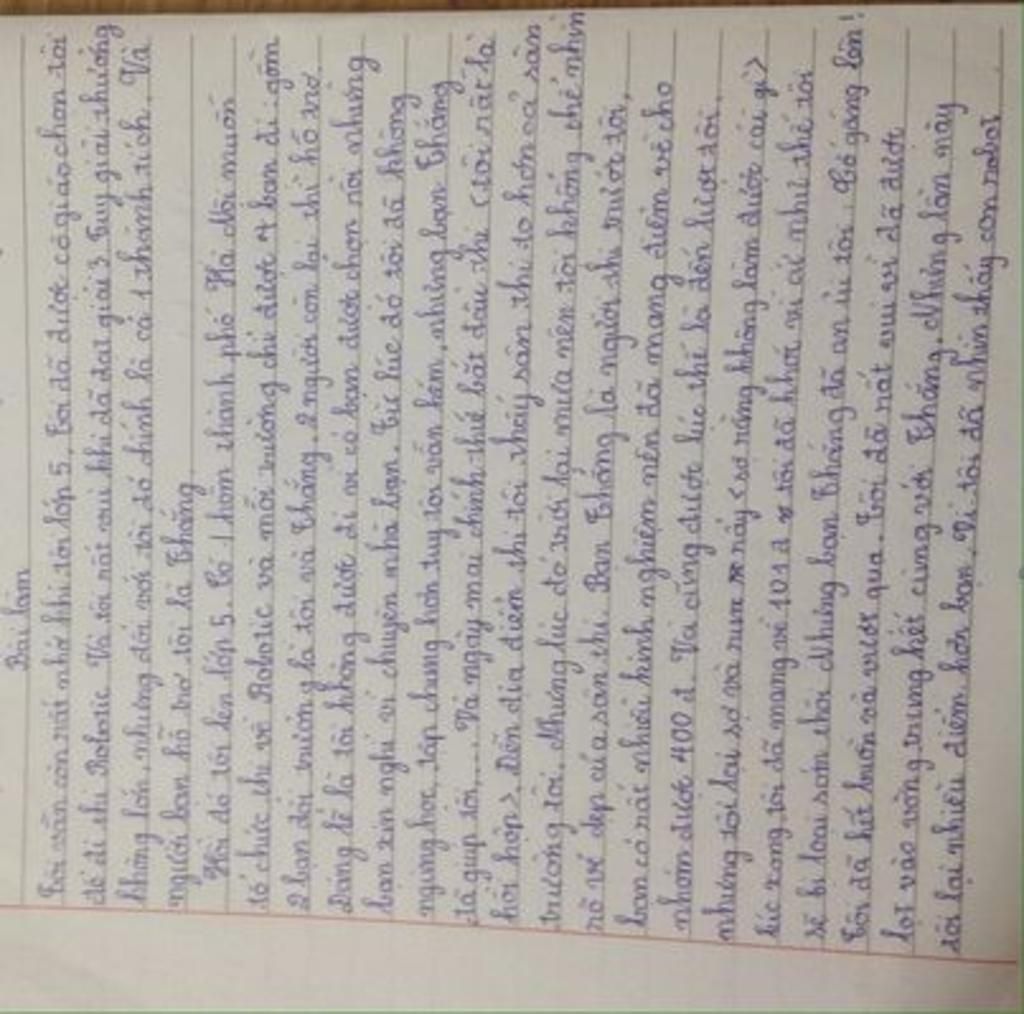 Bài làm
Tôi vẫn còn rất nhớ khi tôi lớp 5. Tôi đã được cô giáo chọn tôi
để đi thi Robotic. Và tôi rất vui khi đã đạt giải 3 Tuy giải thưởng
không lớn, nhưng đối với tôi đó chính là cả 1 thành tích. Và
người bạn hỗ trợ tôi là Thắng.
Hồi đó tôi lên lớp 5. Có 1 hôm thành phố Hà Nội muốn
tổ chức thi về Robotic và mỗi trường chỉ được 4 bạn đi gồm
2 bạn đội trưởng là tôi và Thắng, 2 người còn lại thì hỗ trợ.
Đáng lẽ là tôi không được đi vì có bạn được chọn rồi nhưng
bạn xin nghỉ vì chuyện nhà bạn. Lúc đó tôi đã không
ngừng học, tập chung hơn tuy tôi vẫn kém, nhưng bạn Thắng
đã giúp tôi,.... Và ngày mai chính thức bắt đầu thi (tôi rất là
hồi hộp). Đến địa điểm thi tôi thấy sân thi to hơn cả sân
trường tôi. Nhưng lúc đó trời lại mưa nên tôi không thể nhìn
rõ vẻ đẹp của sân thi. Bạn Thắng là người thi trước tôi,
bạn có rất nhiều kinh nghiệm nên đã mang điểm về cho
nhóm được 400 đ. Và cũng được lúc thì là đến lượt tôi,
nhưng tôi lại sợ và run rẩy (sợ rằng không làm được cái gì)
lúc xong tôi đã mang về 101 đ tôi đã khóc vì cứ như thế tôi
sẽ bị loại sớm thôi Nhưng bạn Thắng đã an ủi tôi. Cố gắng lên!
Tôi đã hết buồn và vượt qua. Tôi đã rất vui vì đã được
lọt vào vòng trung kết cùng với Thắng. Nhưng lần này
tôi lại nhiều điểm hơn bạn. Vì tôi đã nhìn thấy con robot